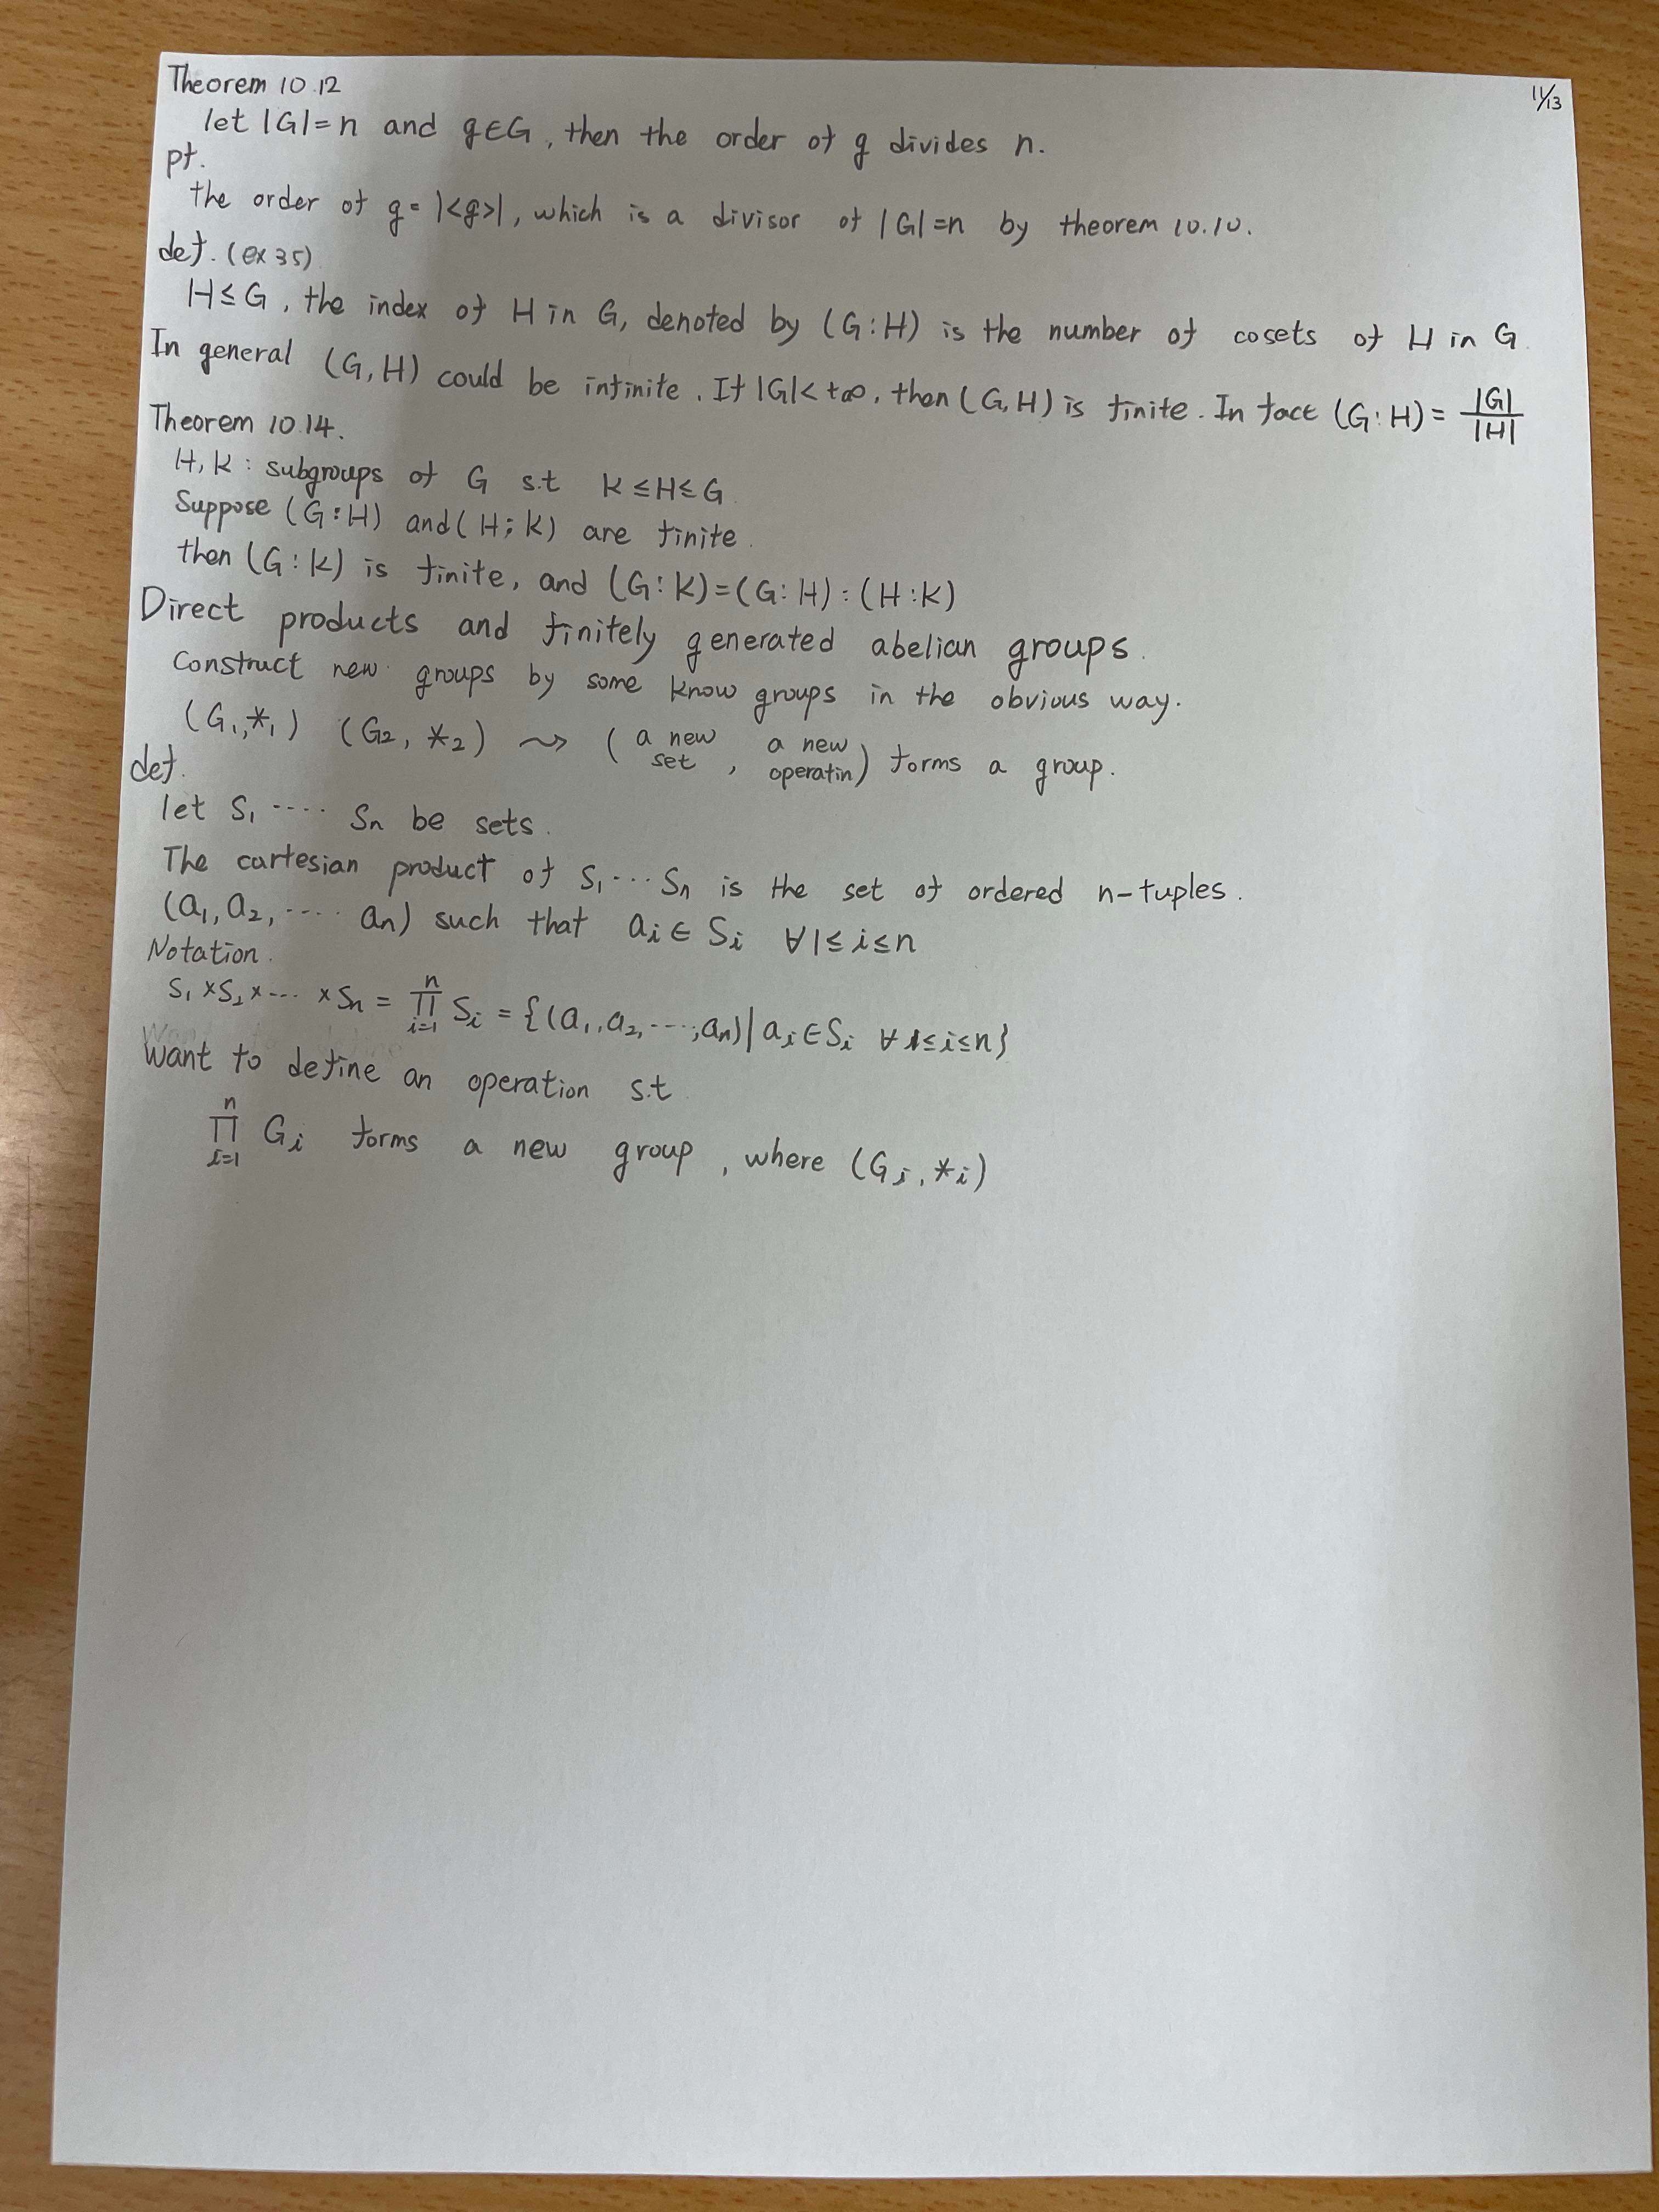 11/13
Theorem 10.12
let |G|=n and g∈G, then the order of g divides n.
pf.
the order of g = |<g>|, which is a divisor of |G|=n by theorem 10.10.
def. (ex 35)
H≤G, the index of H in G, denoted by (G:H) is the number of cosets of H in G.
In general (G,H) could be infinite. If |G|<+∞, then (G,H) is finite. In fact (G:H) = |G|/|H|
Theorem 10.14.
H, K : subgroups of G s.t K≤H≤G
Suppose (G:H) and (H;K) are finite.
then (G:K) is finite, and (G:K)=(G:H):(H:K)
Direct products and finitely generated abelian groups.
Construct new groups by some know groups in the obvious way.
(G₁,*₁) (G₂,*₂) ⇝ (a new set, a new operatin) forms a group.
def.
let S₁ ···· Sn be sets.
The cartesian product of S₁···Sn is the set of ordered n-tuples.
(a₁, a₂, ···· an) such that ai ∈ Si ∀1≤i≤n
Notation.
S₁×S₂×··· ×Sn = ∏ⁿᵢ₌₁ Si = {(a₁,a₂,···,an)|ai∈Si ∀1≤i≤n}
Want to define an operation s.t
∏ⁿᵢ₌₁ Gi forms a new group, where (Gi,*i)